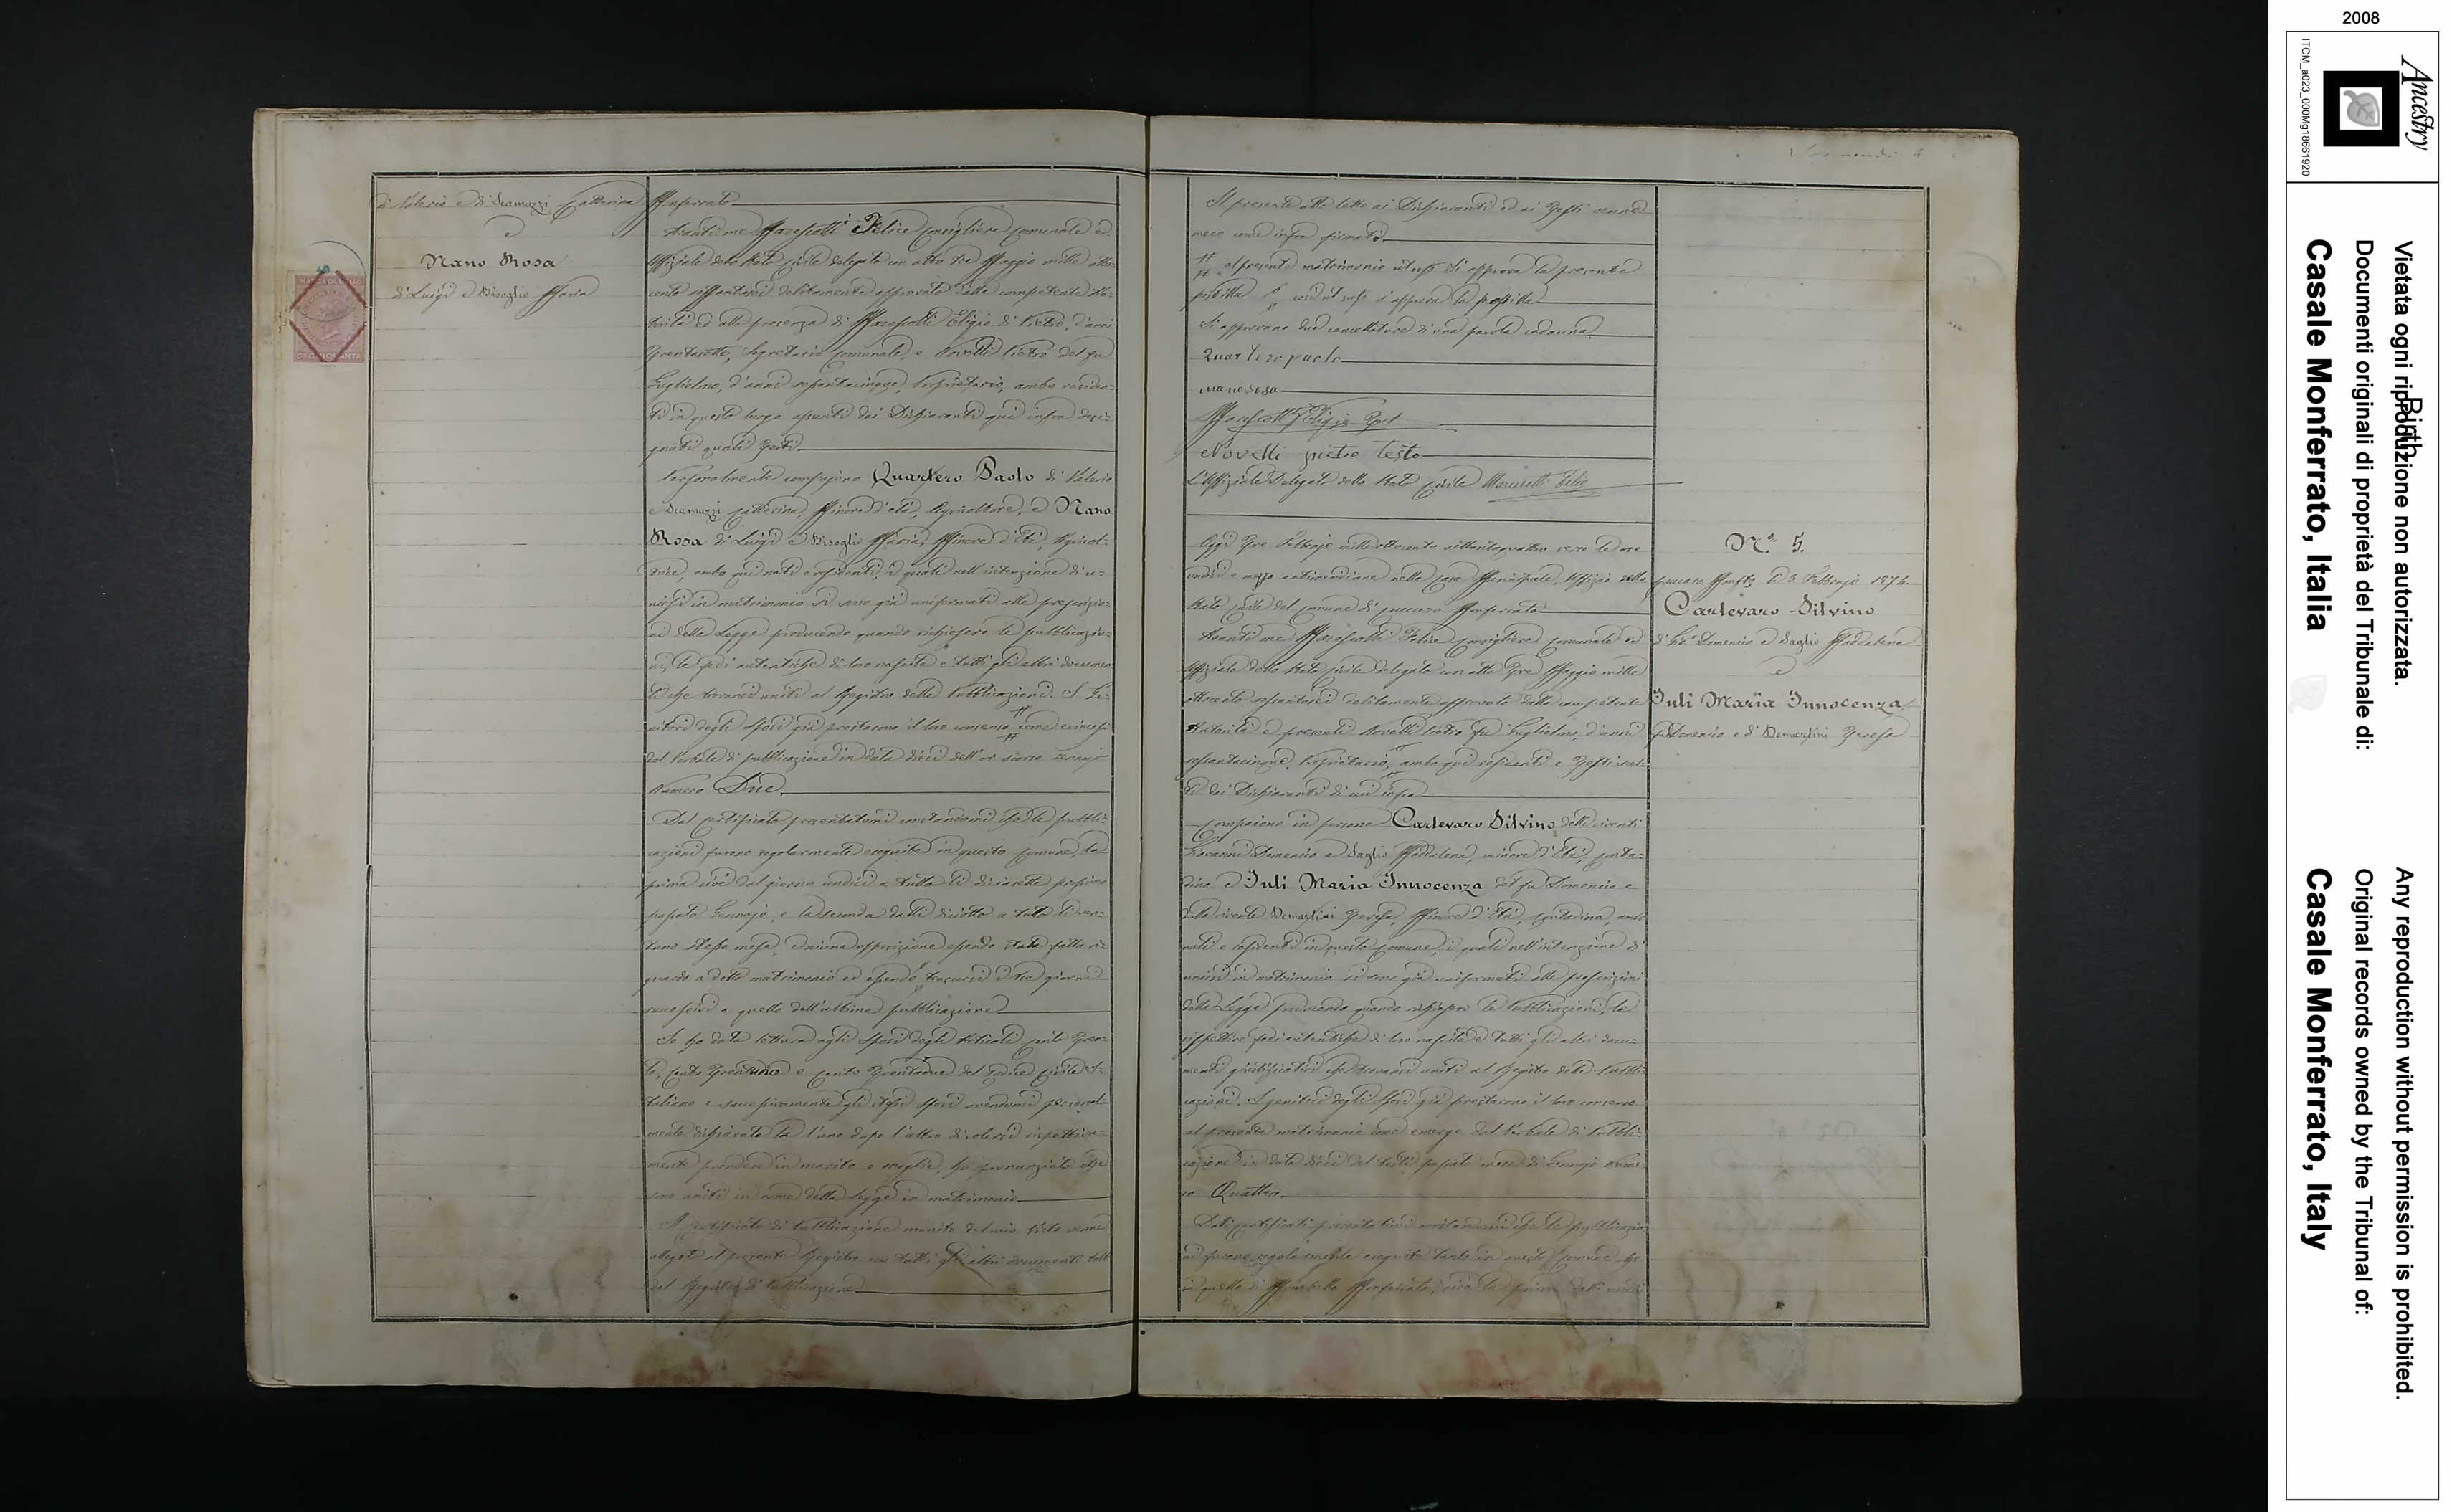 di Valerio e di Scamuzzi Catterina
e
Nano Rosa
di Luigi e Bisoglio Maria
CINQUANTA
Monferrato
Avanti me Marescotti Felice Consigliere Comunale ed
Uffiziale dello Stato Civile delegato con atto tre Maggio mille otto-
cento debitamente approvato dalla competente Au-
torità ed alla presenza di Marescotti Eligio di Pietro, d'anni
Trentasette, Segretario Comunale, e Novelli Pietro del fu
Guglielmo, d'anni sessantacinque, Proprietario, ambo residen-
ti in questo luogo assunti dai Dichiaranti qui infra desi-
gnati quali Testi
Personalmente compajono Quartero Paolo di Valerio
e Scamuzzi Catterina, Minore d'età, Agricoltore, e Nano
Rosa di Luigi e Bisoglio Maria, Minore d'Età, Agricol-
trice, ambo qui nati e residenti, i quali nell'intenzione di u-
nirsi in matrimonio si sono già uniformati alle prescrizio-
ni della Legge producendo quando richiesero le pubblicazio-
ni, le fedi autentiche di loro nascita e tutti gli altri documen-
ti che trovansi uniti al Registro delle Pubblicazioni. I Ge-
nitori degli sposi già prestarono il loro consenso # come
dal Verbale di pubblicazione in data dieci dell'or scorso Gennajo
Numero Due.
Dal certificato presentatomi constandomi che le pubbli-
cazioni furono regolarmente eseguite in questo Comune, la
prima cioè dal giorno undici a tutto li diciasette prossimo
passato Gennajo, e la seconda dalli diciotto a tutto li ven-
tuno stesso mese, e niuna opposizione essendo stata fatta ri-
guardo a detto matrimonio ed essendo trascorsi i tre giorni
successivi a quello dell'ultima pubblicazione
Io ho dato lettura agli Sposi degli Articoli cento Tren-
ta, cento Trentuno e cento Trentadue del Codice Civile I-
taliano e successivamente gli stessi sposi avendomi personal-
mente dichiarato l'uno dopo l'altro di volersi rispettiva-
mente prendere in marito e moglie, ho pronunziato che
sono uniti in nome della Legge in matrimonio
Il certificato di Pubblicazione munito del mio Visto venne
allegato al presente Registro con tutti gli altri documenti
dal Registro di Pubblicazione
Il presente atto letto ai Dichiaranti ed ai Testi venne
meco come infra firmato
# al presente matrimonio si approva la presente
postilla si approva la postilla
Si approvano due cancellature di una parola caduna
Quartero paolo
nano rosa
Marescotti Eligio Test
Novelli pietro Testo
L'Uffiziale Delegato dello Stato Civile Marescotti Felice
Oggi Tre Febbrajo mille ottocento settantaquattro verso le ore
undici e mezzo antimeridiane nella Casa Municipale, Uffizio dello
Stato Civile del Comune di Cuccaro Monferrato
Avanti me Marescotti Felice Consigliere Comunale ed
Uffiziale dello Stato Civile delegato con atto Tre Maggio mille
ottocento debitamente approvato dalla competente
Autorità e presenti Novelli Pietro fu Guglielmo, d'anni
sessantacinque, Proprietario, ambo qui residenti e Testi
ti dai Dichiaranti di cui infra
Compaiono in persona Cartevaro Silvino delli viventi
Giovanni Domenico e Saglio Maddalena, minore d'Età, conta-
dino e Iuli Maria Innocenza del fu Domenico e
della vivente Demartini Teresa, Minore d'Età, contadina, ambo
nati e residenti in questo Comune, i quali nell'intenzione di
unirsi in matrimonio si sono già uniformati alle prescrizioni
della Legge producendo quando richiesero le Pubblicazioni, le
rispettive fedi autentiche di loro nascita e tutti gli altri docu-
menti giustificativi che trovansi uniti al Registro delle Pubbli-
cazioni. I genitori degli Sposi già prestarono il loro consenso
al presente matrimonio come emerge dal Verbale di Pubbli-
cazione in data dieci del passato mese di Gennajo Nume-
ro Quattro.
Dai certificati presentatimi constandomi che le pubblicazio-
ni furono regolarmente eseguite tanto in questo Comune che
in quello di Monferrato, cioè la prima dalli undici
N.° 5.
Cuccaro Monf.to li 3 Febbrajo 1874
Cartevaro Silvino
di Gio. Domenico e Saglio Maddalena
e
Iuli Maria Innocenza
fu Domenico e di Demartini Teresa
2008
Ancestry
ITCM_a023_000Mg18661920
Birth
Vietata ogni riproduzione non autorizzata.
Documenti originali di proprietà del Tribunale di:
Casale Monferrato, Italia
Any reproduction without permission is prohibited.
Original records owned by the Tribunal of:
Casale Monferrato, Italy